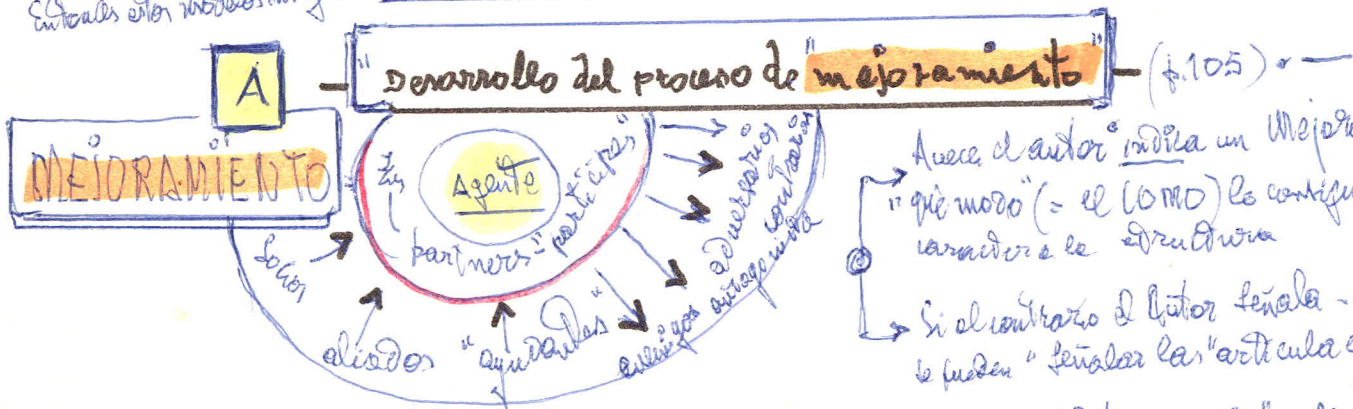 Entonces estos modelos
A
"Desarrollo del proceso de "mejoramiento" (p.105)
MEJORAMIENTO
Agente
partners = "participas"
Socios
aliados
"ayudantes"
enemigos
antagonista
adversarios
contrarios
A veces el autor indica un Mejora
"qué modo" (= el COMO) lo consigu
caracter a la estructura
Si al contrario el Autor señala -
se pueden "señalar las "articula